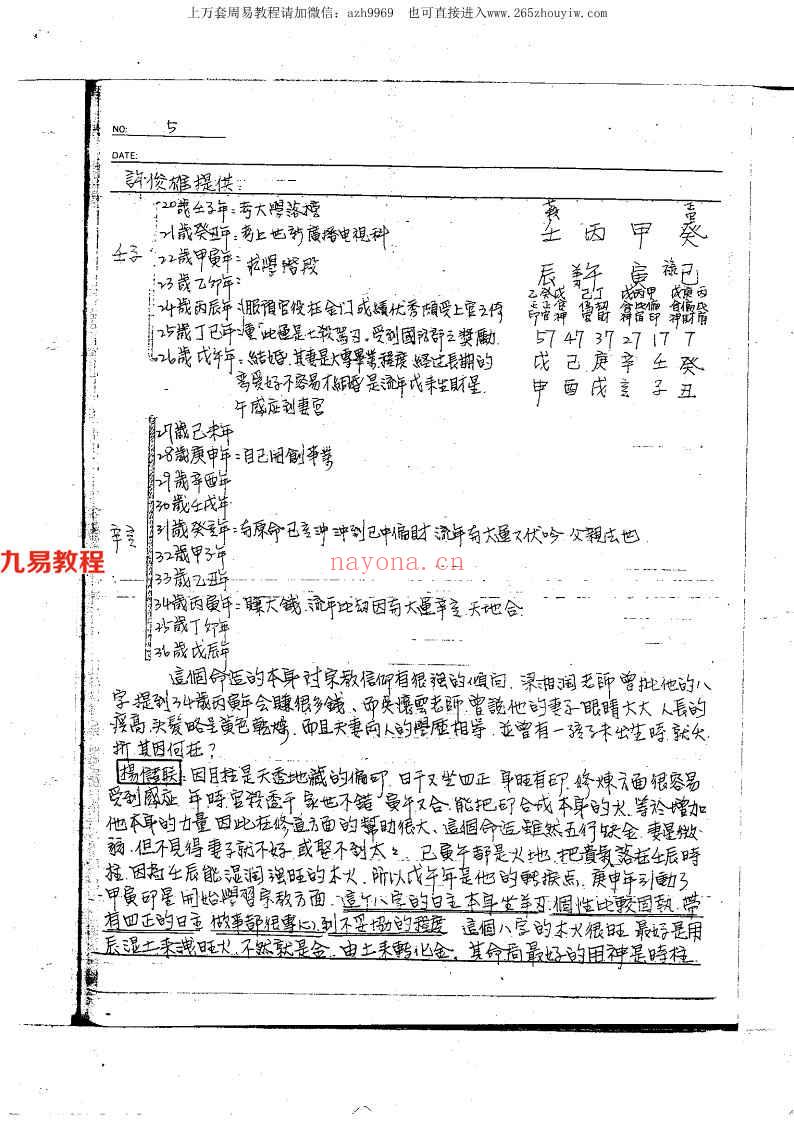 上万套周易教程请加微信：azh9969 也可直接进入www.265zhouyiw.com
NO: 5
DATE:
許俊雄提供：
20歲壬子年：考大學落榜
21歲癸丑年：考上世新廣播电視科
壬子
22歲甲寅年：求學階段
23歲乙卯年：
24歲丙辰年：服預官役在金门成績优秀頗受上官之倚
25歲丁巳年：重"此運是七殺駕刃。受到國防部之獎勵.
26歲戊午年：結婚.其妻是大專畢業程度 經过長期的
恋愛好不容易才結婚是流年戊來生財星.
午感应到妻宮
壬 丙 甲 癸
辰 午 寅 巳
祿
57 47 37 27 17 7
戊 己 庚 辛 壬 癸
甲 酉 戌 亥 子 丑
27歲己未年
28歲庚申年：自己開創事業
29歲辛酉年
30歲壬戌年
辛亥
31歲癸亥年：与原命巳亥冲 冲到巳中偏財 流年与大運又伏吟 父親去世.
32歲甲子年
33歲乙丑年
34歲丙寅年：賺大錢.流年比劫因与大運辛亥天地合.
35歲丁卯年
36歲戊辰年
九易教程
nayona.cn
這個命造的本身对宗教信仰有很强的傾向. 梁湘润老師曾批他的八
字提到34歲丙寅年会賺很多錢、而老師曾說他的妻子眼睛大大 人長的
瘦高.头髮略呈黄色乾燥.而且夫妻両人的學歷相等.並曾有一孩子未出生時就夭
折 其因何在？
因月柱是天透地藏的偏印.日干又坐四正 身旺有印.修煉方面很容易
受到感应 年時官殺透干 家世不錯 寅午又合.能把印合成本身的火.等於增加
他本身的力量 因此在修道方面的幫助很大、這個命造虽然五行缺金.妻星微
弱.但不見得妻子就不好.或娶不到太々. 巳寅午都是火地.把貴氣落在壬辰時
柱.因为壬辰能湿润强旺的木火.所以戊午年是他的轉捩点.庚申年引動了
甲寅印星開始學習宗教方面.這个八字的日主本身坐羊刃.個性比較固執.帶
有四正的日主 做事都很專心.到不妥協的程度 這個八字的木火很旺 最好是用
辰湿土來洩旺火.不然就是金.由土來轉化金。其命局最好的用神是時柱